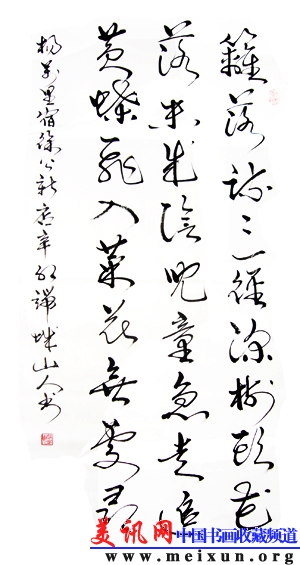 籬落疏〻一徑深樹頭花
落未成陰兒童急走追
黄蝶飛入菜花無處尋
楊万里宿徐公新店辛卯山人书
美讯网 中国书画收藏频道
www.meixun.org